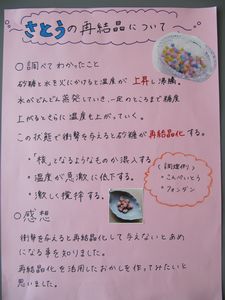 さとうの再結晶について
○調べてわかったこと
砂糖と水を火にかけると温度が上昇し沸騰。
水がどんどん蒸発していき、一定のところまで糖度
上がるとさらに温度も上がっていく。
この状態で衝撃を与えると砂糖が再結晶化する。
・「核」となるようなものが混入する
・温度が急激に低下する。
・激しく撹拌する。
(調理例)
・こんぺいとう
・フォンダン
○感想
衝撃を与えると再結晶化して与えないとあめ
になる事を知りました。
再結晶化を活用したおかしを作ってみたいと
思いました。